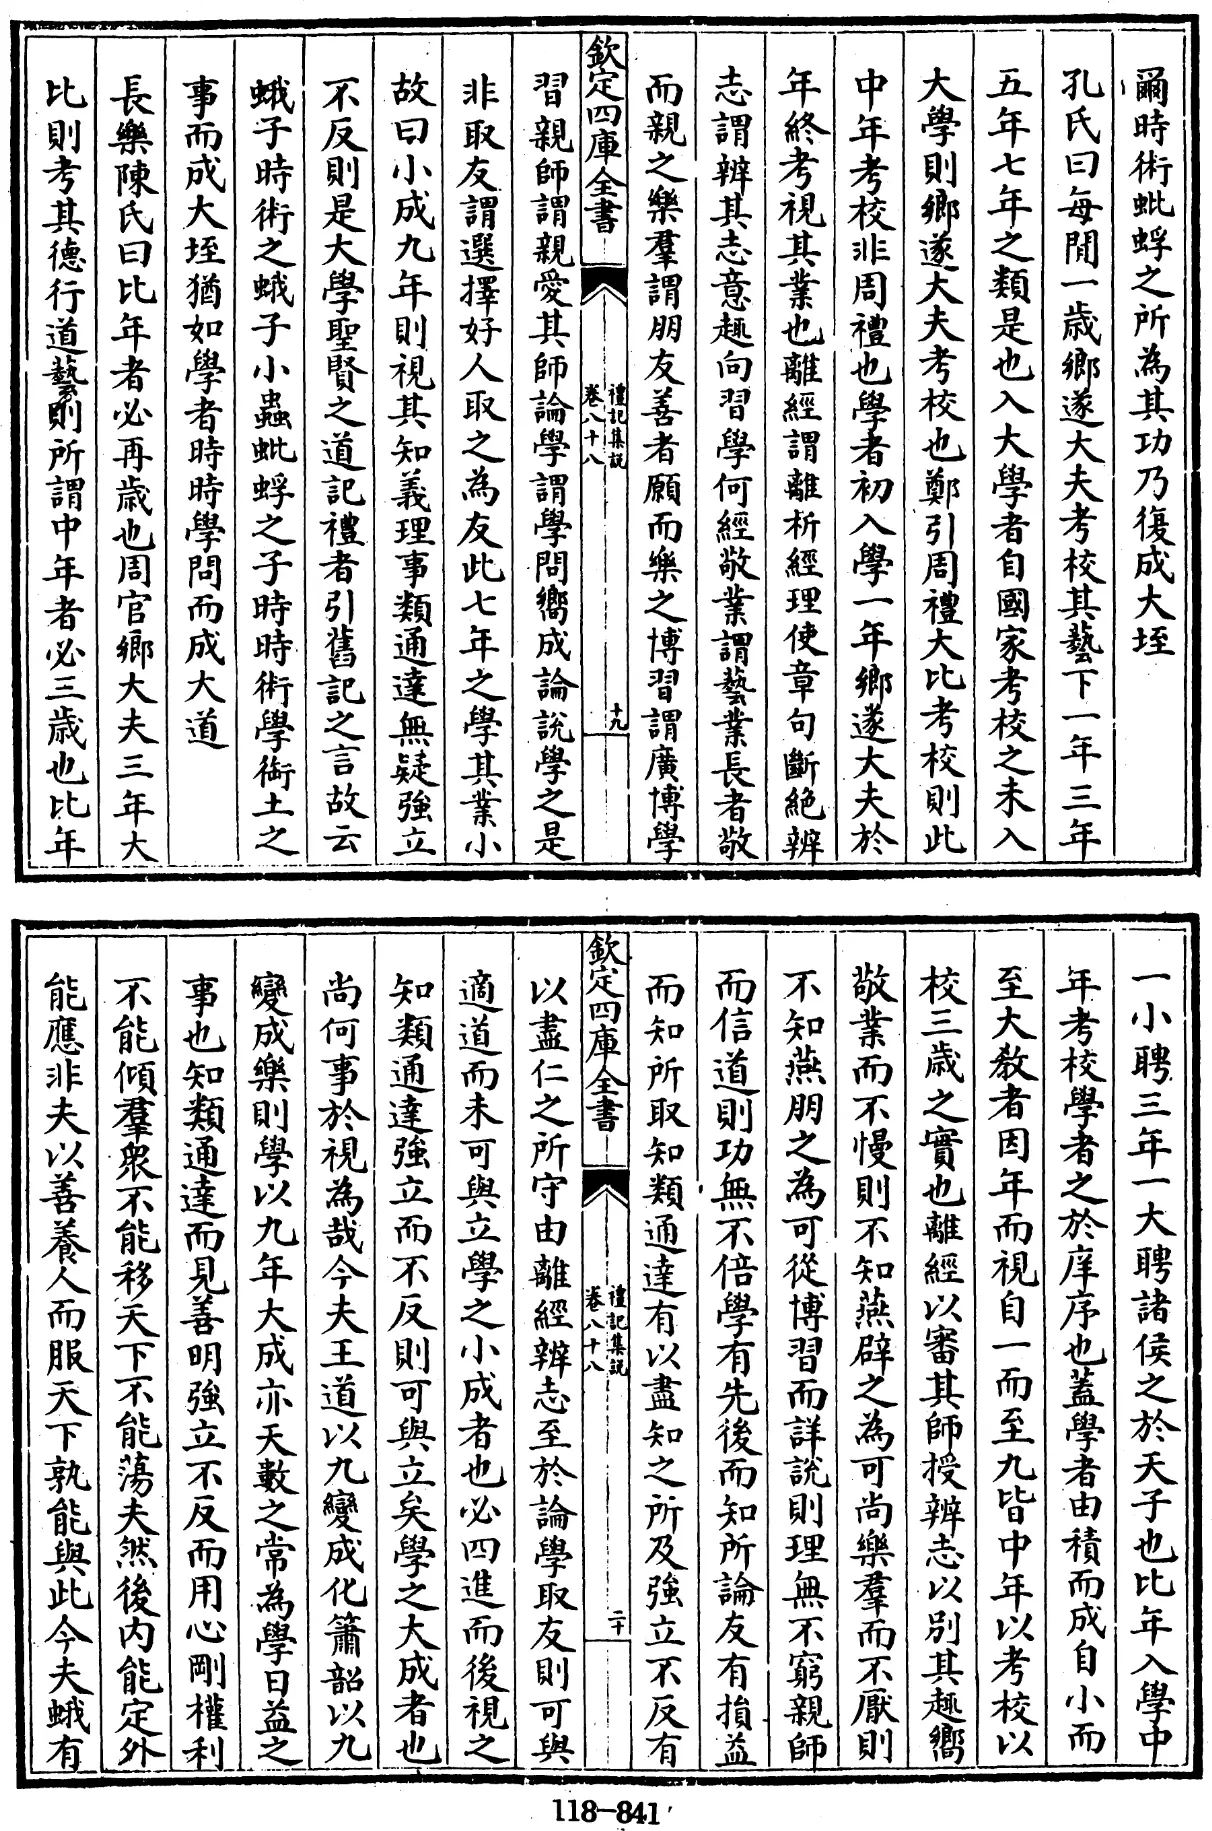 爾時術蚍蜉之所為其功乃復成大垤
孔氏曰每閒一歳鄉遂大夫考校其藝下一年三年
五年七年之類是也入大學者自國家考校之未入
大學則鄉遂大夫考校也鄭引周禮大比考校則此
中年考校非周禮也學者初入學一年鄉遂大夫於
年終考視其業也離經謂離析經理使章句斷絶辨
志謂辨其志意趣向習學何經敬業謂藝業長者敬
而親之樂羣謂朋友善者願而樂之博習謂廣博學
欽定四庫全書
禮記集説
卷八十八
十九
習親師謂親愛其師論學謂學問嚮成論説學之是
非取友謂選擇好人取之為友此七年之學其業小
故曰小成九年則視其知義理事類通達無疑強立
不反則是大學聖賢之道記禮者引舊記之言故云
蛾子時術之蛾子小蟲蚍蜉之子時時術學銜土之
事而成大垤猶如學者時時學問而成大道
長樂陳氏曰比年者必再歳也周官鄉大夫三年大
比則考其德行道藝則所謂中年者必三歳也比年
一小聘三年一大聘諸侯之於天子也比年入學中
年考校學者之於庠序也蓋學者由積而成自小而
至大教者因年而視自一而至九皆中年以考校以
校三歳之實也離經以審其師授辨志以別其趣嚮
敬業而不慢則不知燕辟之為可尚樂羣而不厭則
不知燕朋之為可從博習而詳説則理無不窮親師
而信道則功無不倍學有先後而知所論友有損益
而知所取知類通達有以盡知之所及強立不反有
欽定四庫全書
禮記集説
卷八十八
二十
以盡仁之所守由離經辨志至於論學取友則可與
適道而未可與立學之小成者也必四進而後視之
知類通達強立而不反則可與立矣學之大成者也
尚何事於視為哉今夫王道以九變成化簫韶以九
變成樂則學以九年大成亦天數之常為學日益之
事也知類通達而見善明強立不反而用心剛權利
不能傾羣衆不能移天下不能蕩夫然後内能定外
能應非夫以善養人而服天下孰能與此今夫蛾有
118-841